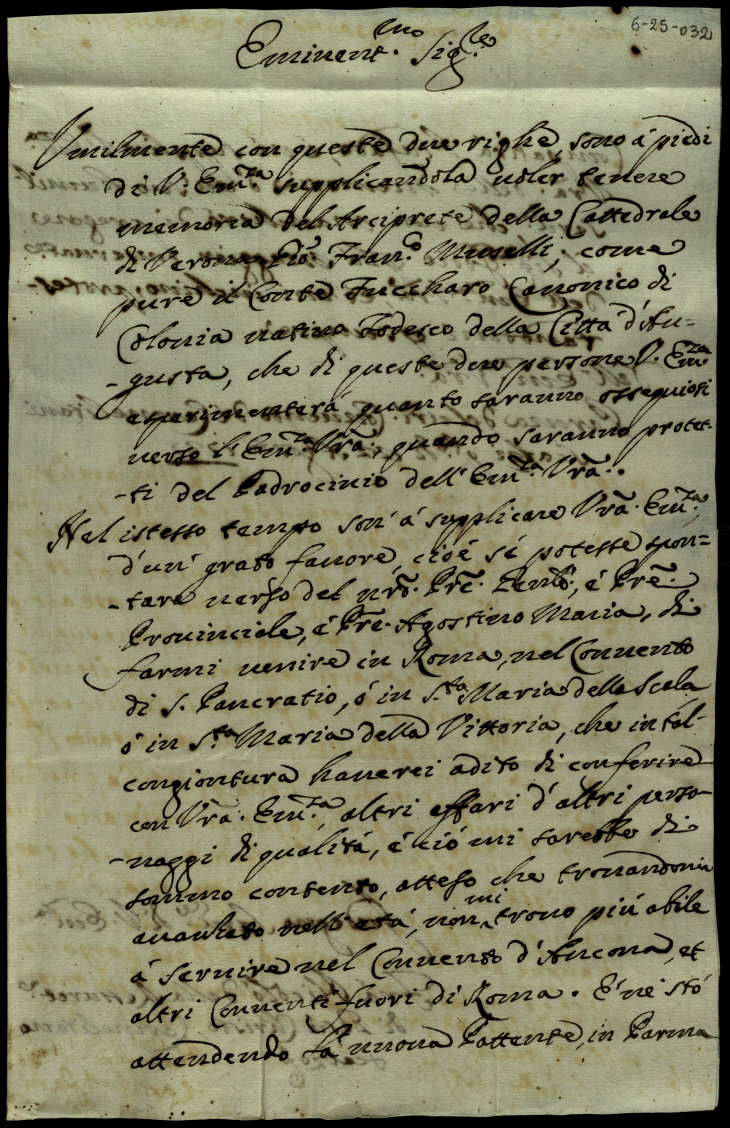 6-25-032
Eminent.mo Sig.re
Umilmente con queste due righe, sono á piedi
di V. Em.za supplicandola uoler tenere
memoria del Arciprete della Cattedrale
di Verona Gio: Fran.co Muselli, come
pure il Conte Fuccharo Canonico di
Colonia natiuo Todesco della Città d'Au-
-gusta, che di queste due persone V. Em.za
esperimenterá quanto saranno ossequiosi
uerso l'Em.za Vrã., quando saranno protet-
-ti del Padrocinio dell'Em.za Vrã..
Nel istesso tempo son' á supplicare Vrã. Em.za,
d'un' grato fauore, cioé si potesse spon-
-tare uerso del nrõ. Prẽ. é Prẽ.
Prouinciale, é Prẽ. Agostino Maria, di
farmi uenire in Roma, nel Conuento
di S. Pancratio, ó in S.ta Maria della Scala
ó in S.ta Maria della Vittoria, che in tal-
congiontura hauerei adito di conferire
con Vrã. Em.za, altri affari d'altri perso-
-naggi di qualitá, é ció mi sarebbe di
sommo contento, atteso che trouandomi
auanzato nell'etá, non mi trouo piú abile
á seruire nel Conuento d'Ancona, et
altri Conuenti fuori di Roma. É ne stó
attendendo la nuoua Pattente, in Parma